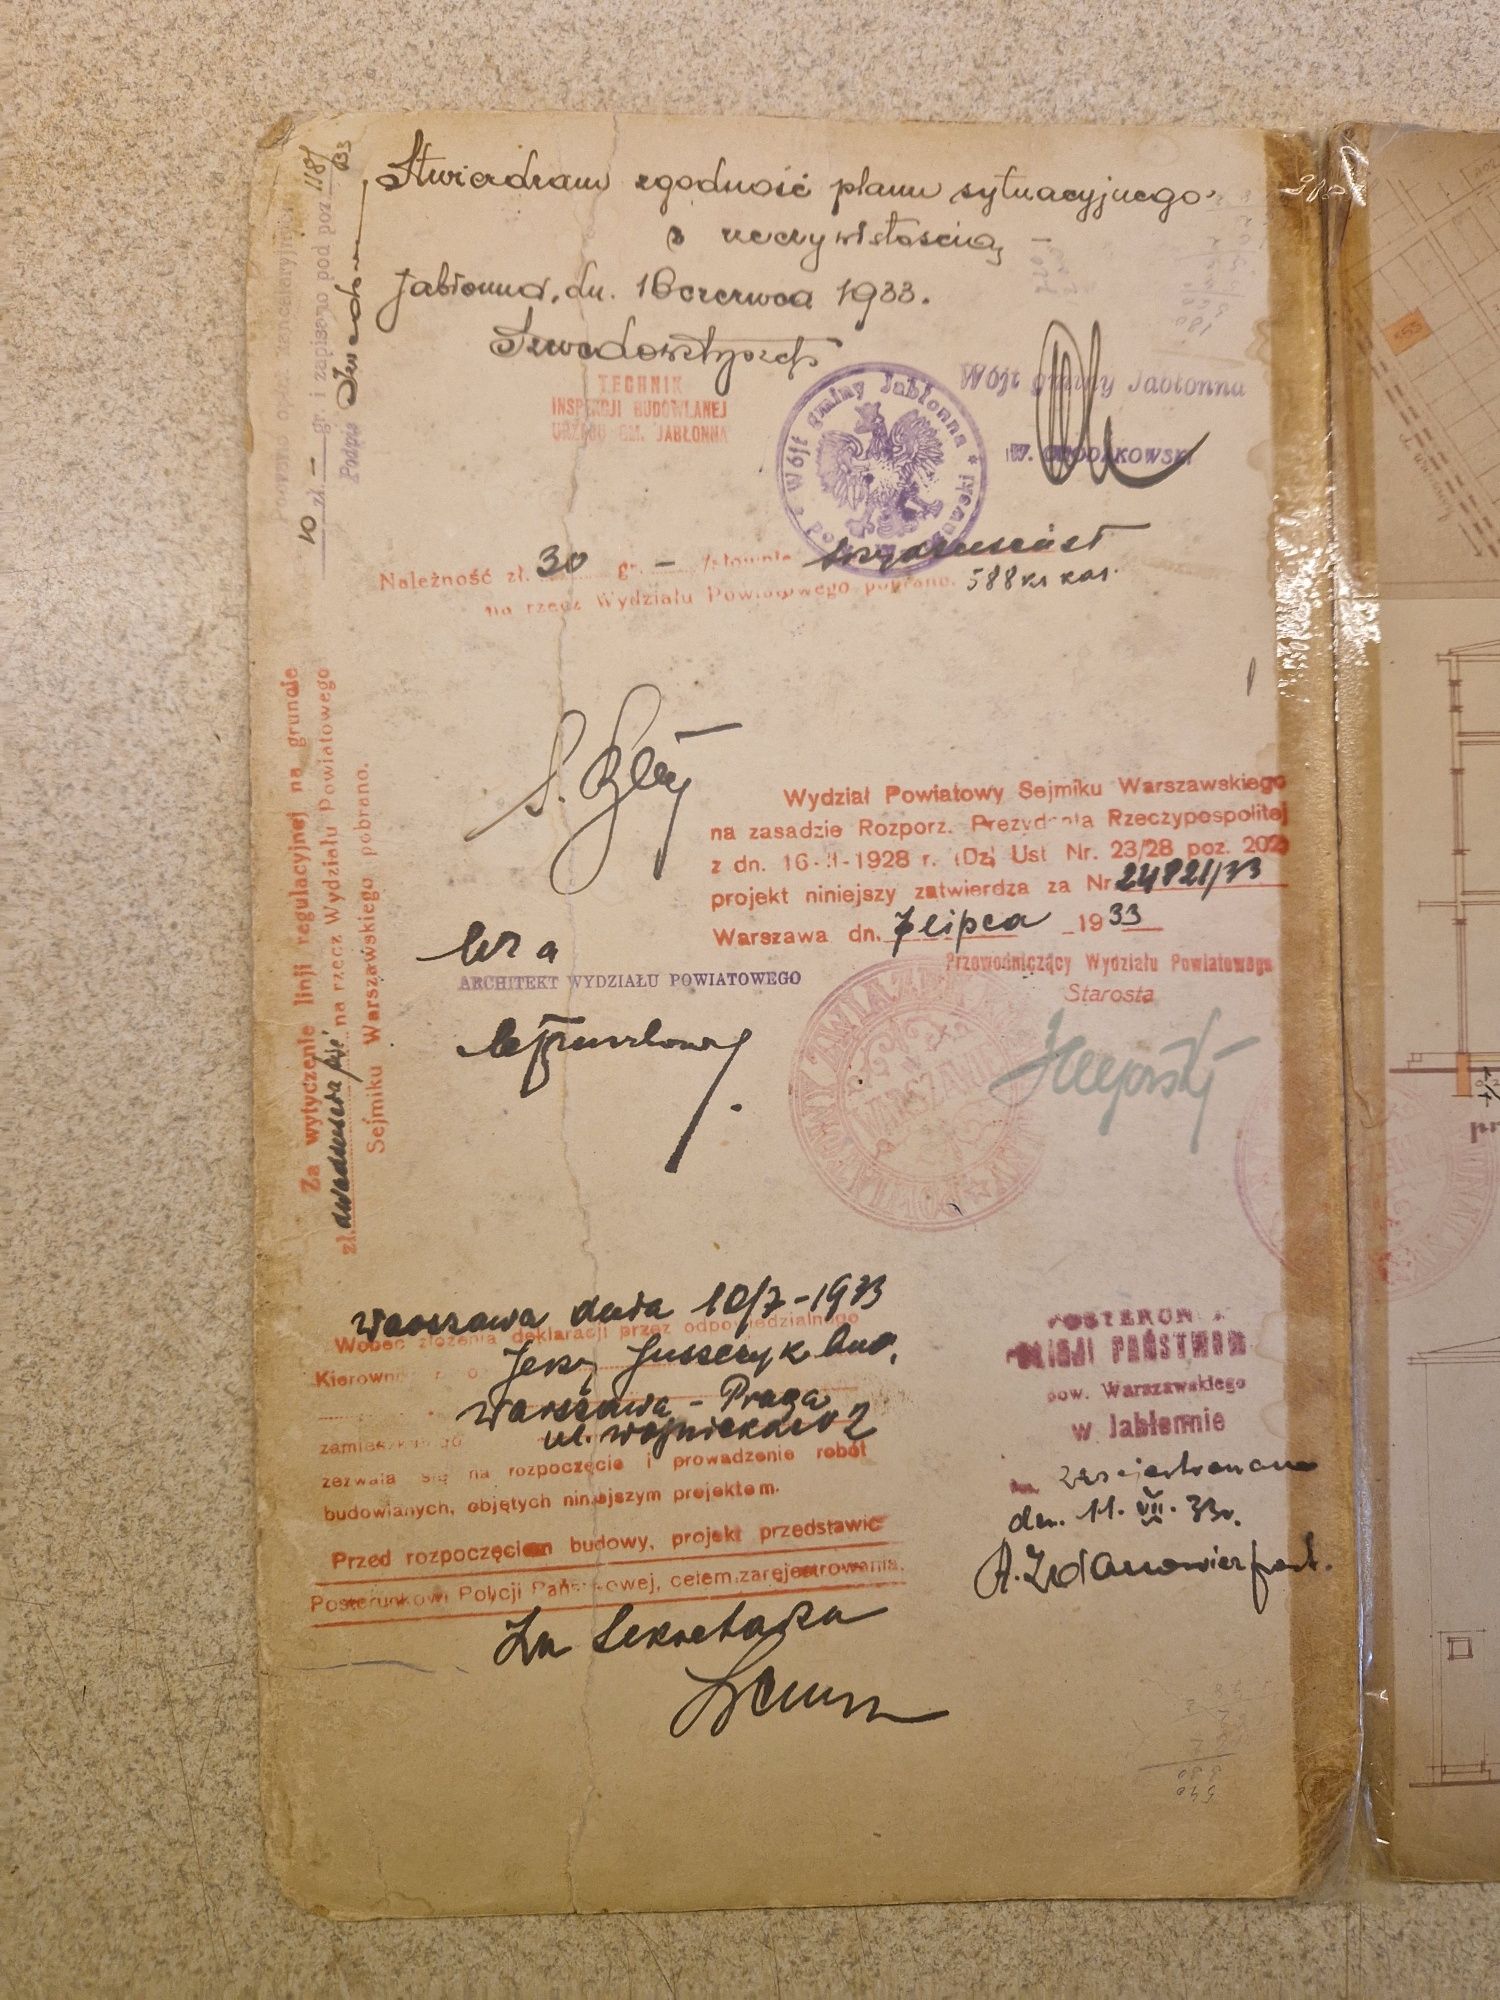 Stwierdzam zgodność planu sytuacyjnego
z rzeczywistością
Jabłonna, dn. 16 czerwca 1933.
TECHNIK
INSPEKCJI BUDOWLANEJ
URZĘDU GM. JABŁONNA
Wójt gminy Jabłonna
Wójt gminy Jabłonna
W.
Należność zł. 30 gr. — /słownie trzydzieści zł
na rzecz Wydziału Powiatowego pobrano. 588 ks kas.
10 zł — gr. i zapisano pod poz. 118/33
Podpis
Za wytyczenie linji regulacyjnej na gruncie
zł. dwadzieścia pięć na rzecz Wydziału Powiatowego
Sejmiku Warszawskiego pobrano.
Wydział Powiatowy Sejmiku Warszawskiego
na zasadzie Rozporz. Prezydenta Rzeczypospolitej
z dn. 16-II-1928 r. (Dz. Ust. Nr. 23/28 poz. 202)
projekt niniejszy zatwierdza za Nr 24821/33
Warszawa dn. 7 lipca 1933
Przewodniczący Wydziału Powiatowego
Starosta
wz a
ARCHITEKT WYDZIAŁU POWIATOWEGO
WARSZAWA
Warszawa dnia 10/7-1933
Wobec złożenia deklaracji przez odpowiedzialnego
Kierown Jerzy
Warszawa - Praga
zamieszkałego ul. 2
zezwala się na rozpoczęcie i prowadzenie robót
budowlanych, objętych niniejszym projektem.
Przed rozpoczęciem budowy, projekt przedstawić
Posterunkowi Policji Państwowej, celem zarejestrowania.
Za Sekretarza
POSTERUNEK
POLICJI PAŃSTWOW
pow. Warszawskiego
w Jabłonnie
zarejestrowano
dn. 11. VII. 33 r.